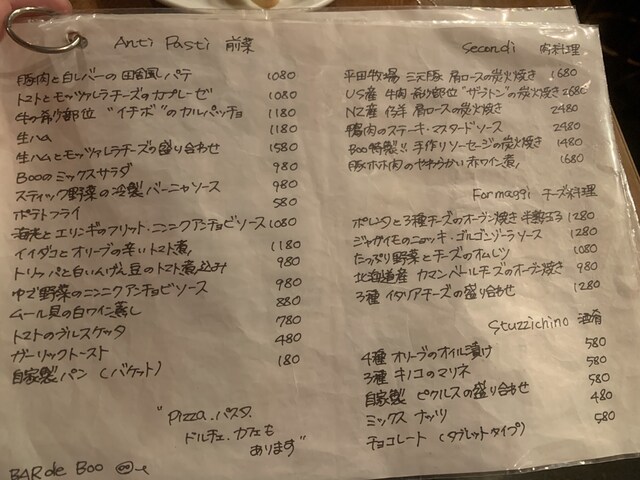 Anti Pasti 前菜
豚肉と白レバーの田舎風パテ 1080
トマトとモッツァレラチーズのカプレーゼ 1080
牛の希少部位 "イチボ"のカルパッチョ 1180
生ハム 1180
生ハムとモッツァレラチーズの盛り合わせ 1580
Booのミックスサラダ 980
スティック野菜の冷製バーニャソース 980
ポテトフライ 580
海老とエリンギのフリット・ニンニクアンチョビソース 1080
イイダコとオリーブの辛いトマト煮 1180
トリッパと白いんげん豆のトマト煮込み 980
ゆで野菜のニンニクアンチョビソース 980
ムール貝の白ワイン蒸し 880
トマトのブルスケッタ 780
ガーリックトースト 480
自家製パン (バケット) 180
"Pizza.パスタ.
ドルチェ.カフェも
あります"
BAR de Boo
Secondi 肉料理
平田牧場 三元豚 肩ロースの炭火焼き 1680
US産 牛肉 希少部位 "ザブトン"の炭火焼き 2680
NZ産 仔羊 肩ロースの炭火焼き 2480
鴨肉のステーキ・マスタードソース 2480
Boo特製!! 手作りソーセージの炭火焼き 1480
豚ホホ肉のやわらかい赤ワイン煮 1680
Formaggi チーズ料理
ポレンタと3種チーズのオーブン焼き 半熟玉子 1280
ジャガイモのニョッキ・ゴルゴンゾーラソース 1280
たっぷり野菜とチーズのオムレツ 1080
北海道産 カマンベールチーズのオーブン焼き 980
3種 イタリアチーズの盛り合わせ 1280
Stuzzichino 酒肴
4種 オリーブのオイル漬け 580
3種 キノコのマリネ 580
自家製 ピクルスの盛り合わせ 580
ミックス ナッツ 480
チョコレート (タブレットタイプ) 580